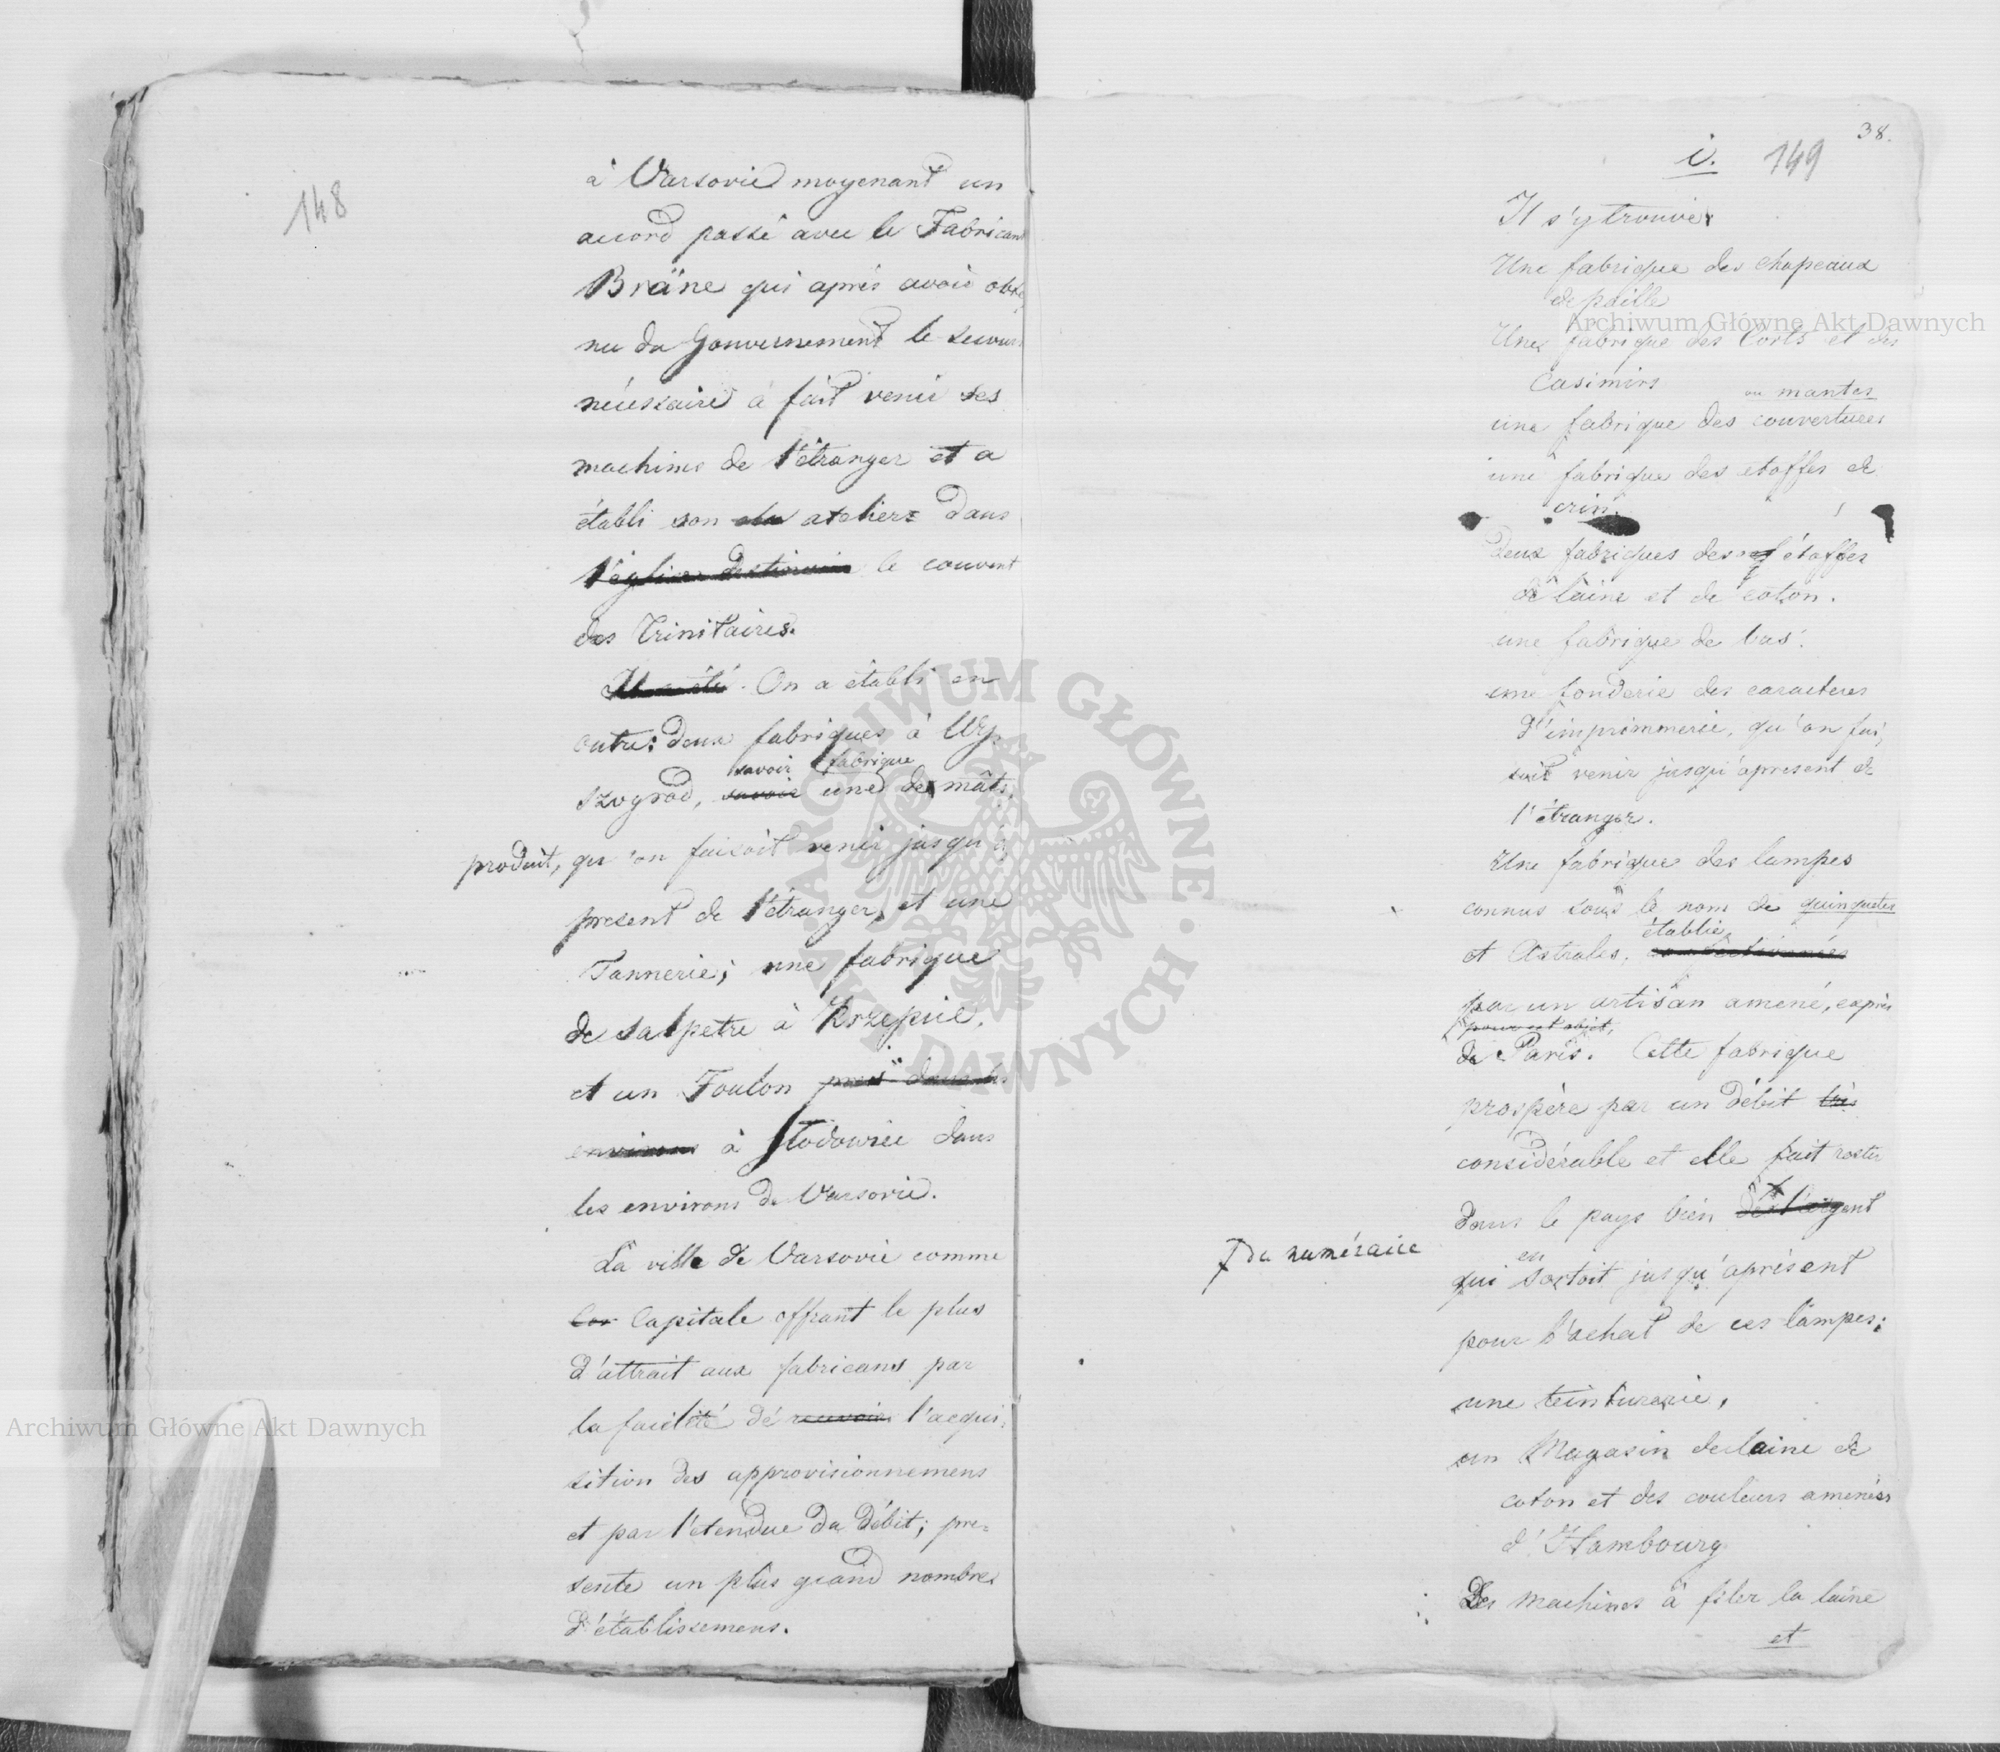 148
à Varsovie moyenant un
accord passé avec le Fabricant
Bräne qui après avoir obte
nu du Gouvernement le secours
nécessaire à fait venir ses
machines de l'étranger et a
établi son ateliers dans
l'église le couvent
des Trinitaires.
Il a été. On a établi en
outre: deux fabriques à Wy,
szogrod, savoir savoir une fabrique de mâts,
produit, qu'on faisoit venir jusqu'à
present de l'étranger, et une
Tannerie; une fabrique
de salpetre à Krzepice,
et un Foulon près dans les
environs à dans
les environs de Varsovie.
La ville de Varsovie comme
Capitale offrant le plus
d'attrait aux fabricans par
la facilité de recevoir l'acqui,
sition des approvisionnemens
et par l'etendue du Débit; pre=
sente un plus grand nombre
d'établissemens.
38.
i. 149
Il s'y trouve
Une fabrique des chapeaux
de paille
Une fabrique des Corts et des
Casimirs
ou mantes
une fabrique des couvertures
une fabrique des etoffes de
crin.
Deux fabriques des étoffes
de laine et de coton.
une fabrique de bas.
une fonderie des caracteres
d'imprimmerie, qu'on fai,
soit venir jusqu'apresent de
l'étranger.
Une fabrique des lampes
connus sous le nom de quinquetes
et Astrales, établie
par un artisan amené, exprès
pour cet objet,
de Paris. Cette fabrique
prospère par un débit très
considérable et elle fait rester
dans le pays bien de l'argent
du numéraire
qui en sortoit jusqu'àprésent
pour l'achat de ces lampes;
une teinturerie,
un Magasin de laine de
coton et des couleurs amenées
d'Hambourg
Des machines à filer la laine
et
Archiwum Główne Akt Dawnych
Archiwum Główne Akt Dawnych
ARCHIWUM GŁÓWNE AKT DAWNYCH